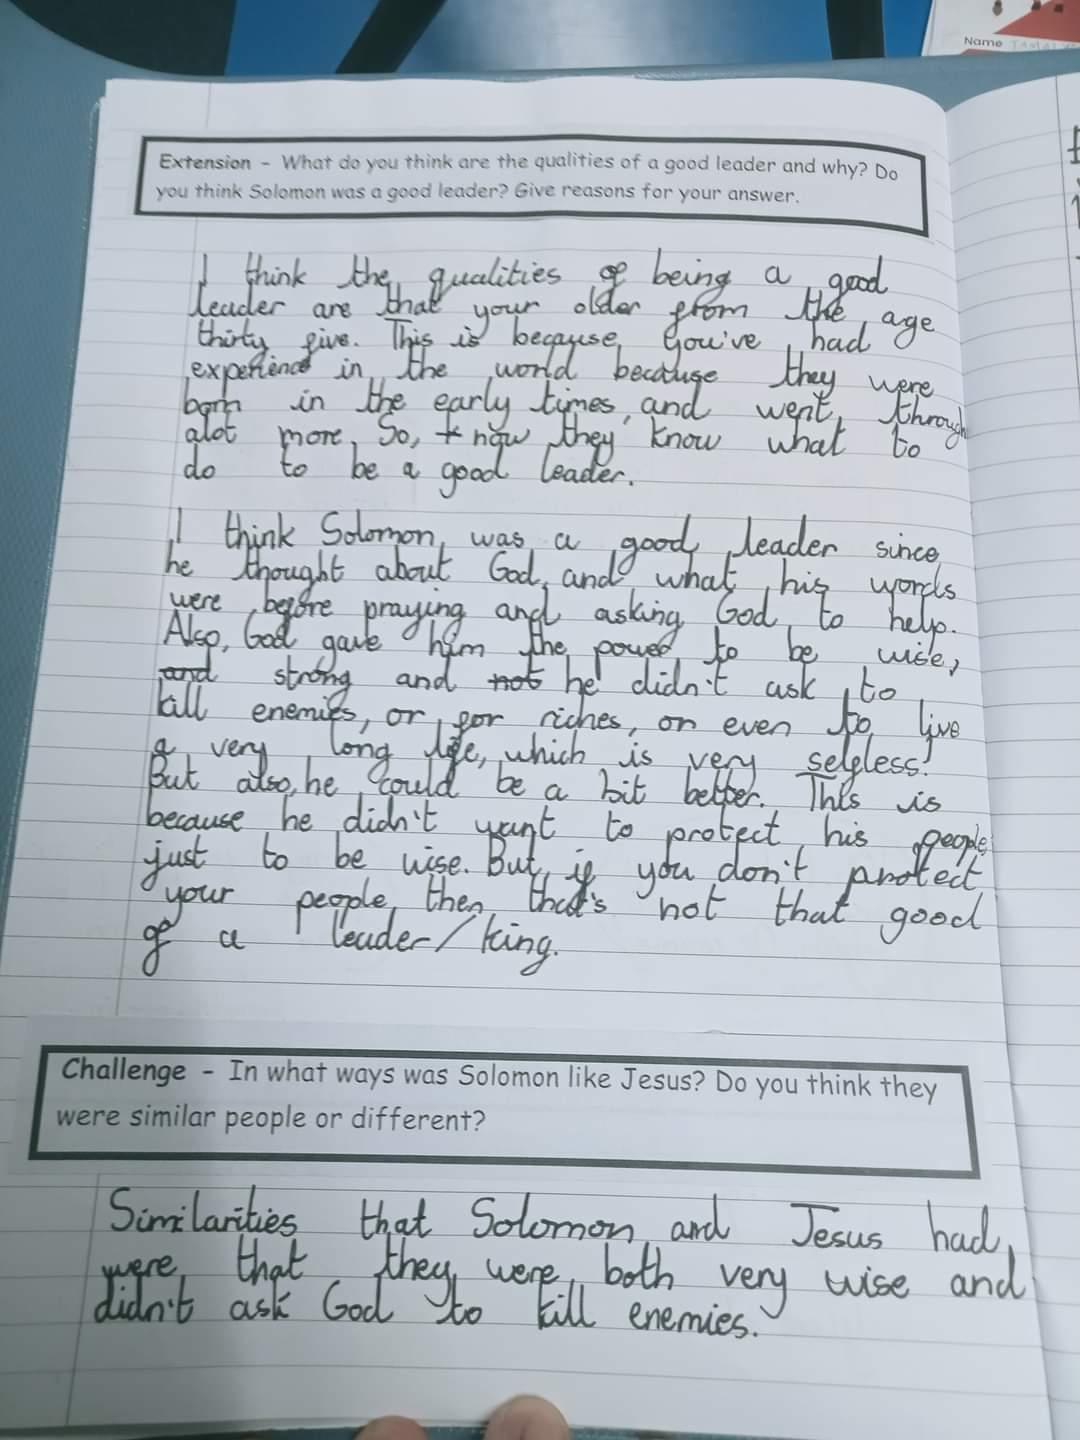 Name
Extension - What do you think are the qualities of a good leader and why? Do
you think Solomon was a good leader? Give reasons for your answer.
I think the qualities of being a good
leader are that your older from the age
thirty five. This is because you've had
experience in the world because they were
born in the early times, and went through
alot more. So, now they know what to
do to be a good leader.
I think Solomon was a good leader since
he thought about God, and what his words
were before praying and asking God to help.
Also, God gave him the power to be wise,
and strong and not he didn't ask to
kill enemies, or for riches, or even to live
a very long life, which is very selfless!
But also, he could be a bit better. This is
because he didn't want to protect his people
just to be wise. But, if you don't protect
your people, then that's not that good
of a leader/king.
Challenge - In what ways was Solomon like Jesus? Do you think they
were similar people or different?
Similarities that Solomon and Jesus had,
were that they were both very wise and
didn't ask God to kill enemies.